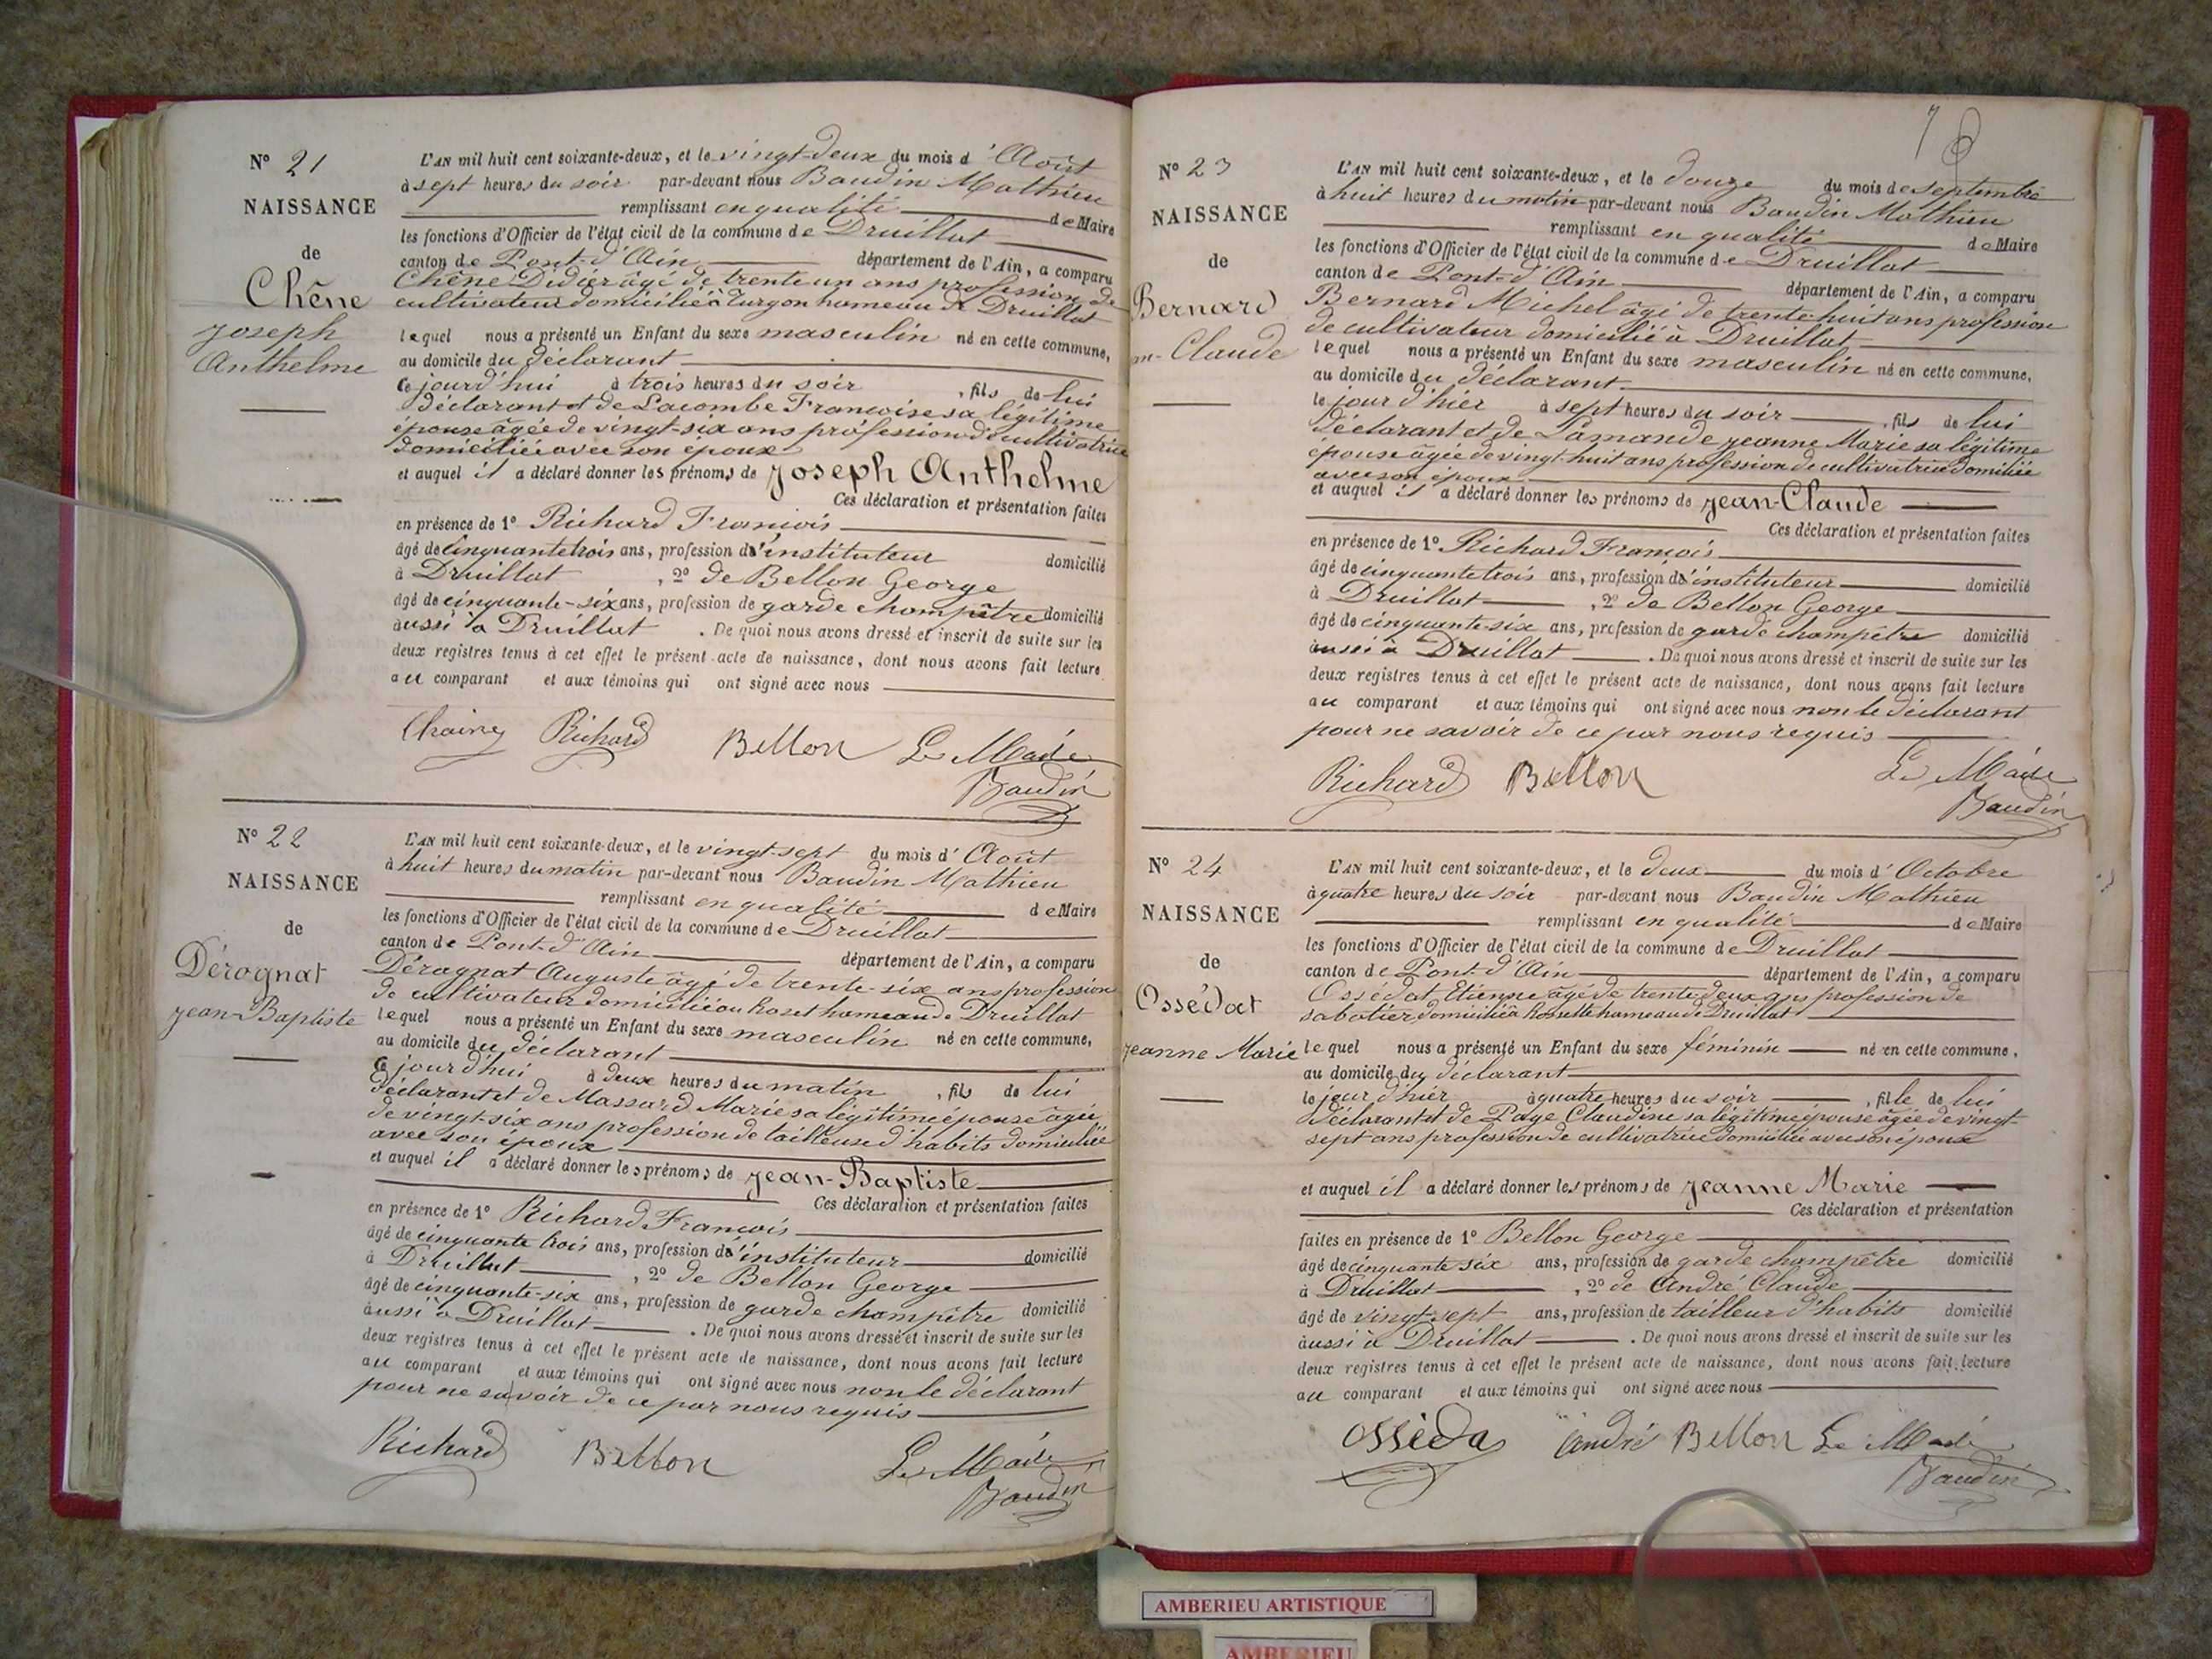 N° 21
NAISSANCE
de
Chêne
Joseph
Anthelme
L'AN mil huit cent soixante-deux, et le vingt-deux du mois d'Août
à sept heures du soir par-devant nous Baudin Mathieu
remplissant en qualité de Maire
les fonctions d'Officier de l'état civil de la commune de Druillat
canton de Pont-d'Ain département de l'Ain, a comparu
Chêne Didier âgé de trente un ans profession de
cultivateur domicilié à Turgon hameau de Druillat
lequel nous a présenté un Enfant du sexe masculin né en cette commune,
au domicile du déclarant
Ce jourd'hui à trois heures du soir, fils de lui
déclarant et de Lacombe Françoise sa légitime
épouse âgée de vingt-six ans profession de cultivatrice
domiciliée avec son époux
et auquel il a déclaré donner les prénoms de Joseph Anthelme
Ces déclaration et présentation faites
en présence de 1° Richard François
âgé de cinquante trois ans, profession d'instituteur domicilié
à Druillat, 2° de Bellon George
âgé de cinquante-six ans, profession de garde champêtre domicilié
aussi à Druillat. De quoi nous avons dressé et inscrit de suite sur les
deux registres tenus à cet effet le présent acte de naissance, dont nous avons fait lecture
au comparant et aux témoins qui ont signé avec nous
Richard Bellon Le Maire
Baudin
N° 22
NAISSANCE
de
Dérognat
Jean-Baptiste
L'AN mil huit cent soixante-deux, et le vingt-sept du mois d'Août
à huit heures du matin par-devant nous Baudin Mathieu
remplissant en qualité de Maire
les fonctions d'Officier de l'état civil de la commune de Druillat
canton de Pont-d'Ain département de l'Ain, a comparu
Dérognat Auguste âgé de trente-six ans profession
de cultivateur domicilié au Roset hameau de Druillat
lequel nous a présenté un Enfant du sexe masculin né en cette commune,
au domicile du déclarant
Ce jourd'hui à deux heures du matin, fils de lui
déclarant et de Massard Marie sa légitime épouse âgée
de vingt-six ans profession de tailleuse d'habits domiciliée
avec son époux
et auquel il a déclaré donner les prénoms de Jean-Baptiste
Ces déclaration et présentation faites
en présence de 1° Richard François
âgé de cinquante trois ans, profession d'instituteur domicilié
à Druillat, 2° de Bellon George
âgé de cinquante-six ans, profession de garde champêtre domicilié
aussi à Druillat. De quoi nous avons dressé et inscrit de suite sur les
deux registres tenus à cet effet le présent acte de naissance, dont nous avons fait lecture
au comparant et aux témoins qui ont signé avec nous non le déclarant
pour ne savoir de ce par nous requis
Richard Bellon Le Maire
Baudin
N° 23
NAISSANCE
de
Bernard
Claude
L'AN mil huit cent soixante-deux, et le douze du mois de septembre
à huit heures du matin par-devant nous Baudin Mathieu
remplissant en qualité de Maire
les fonctions d'Officier de l'état civil de la commune de Druillat
canton de Pont-d'Ain département de l'Ain, a comparu
Bernard Michel âgé de trente-huit ans profession
de cultivateur domicilié à Druillat
lequel nous a présenté un Enfant du sexe masculin né en cette commune,
au domicile du déclarant
le jour d'hier à sept heures du soir, fils de lui
déclarant et de Lamande Jeanne Marie sa légitime
épouse âgée de vingt-huit ans profession de cultivatrice domiciliée
avec son époux
et auquel il a déclaré donner les prénoms de Jean-Claude
Ces déclaration et présentation faites
en présence de 1° Richard François
âgé de cinquante trois ans, profession d'instituteur domicilié
à Druillat, 2° de Bellon George
âgé de cinquante-six ans, profession de garde champêtre domicilié
aussi à Druillat. De quoi nous avons dressé et inscrit de suite sur les
deux registres tenus à cet effet le présent acte de naissance, dont nous avons fait lecture
au comparant et aux témoins qui ont signé avec nous non le déclarant
pour ne savoir de ce par nous requis
Richard Bellon Le Maire
Baudin
N° 24
NAISSANCE
de
Ossédat
Jeanne Marie
L'AN mil huit cent soixante-deux, et le deux du mois d'Octobre
à quatre heures du soir par-devant nous Baudin Mathieu
remplissant en qualité de Maire
les fonctions d'Officier de l'état civil de la commune de Druillat
canton de Pont-d'Ain département de l'Ain, a comparu
Ossédat Etienne âgé de trente-deux ans profession de
sabotier, domicilié à Rossette hameau de Druillat
lequel nous a présenté un Enfant du sexe féminin né en cette commune,
au domicile du déclarant
le jour d'hier à quatre heures du soir, fille de lui
déclarant et de Page Claudine sa légitime épouse âgée de vingt-
sept ans profession de cultivatrice domiciliée avec son époux
et auquel il a déclaré donner les prénoms de Jeanne Marie
Ces déclaration et présentation
faites en présence de 1° Bellon George
âgé de cinquante six ans, profession de garde champêtre domicilié
à Druillat, 2° de André Claude
âgé de vingt-sept ans, profession de tailleur d'habits domicilié
aussi à Druillat. De quoi nous avons dressé et inscrit de suite sur les
deux registres tenus à cet effet le présent acte de naissance, dont nous avons fait lecture
au comparant et aux témoins qui ont signé avec nous
Osséda André Bellon Le Maire
Baudin
AMBERIEU ARTISTIQUE
AMBERIEU